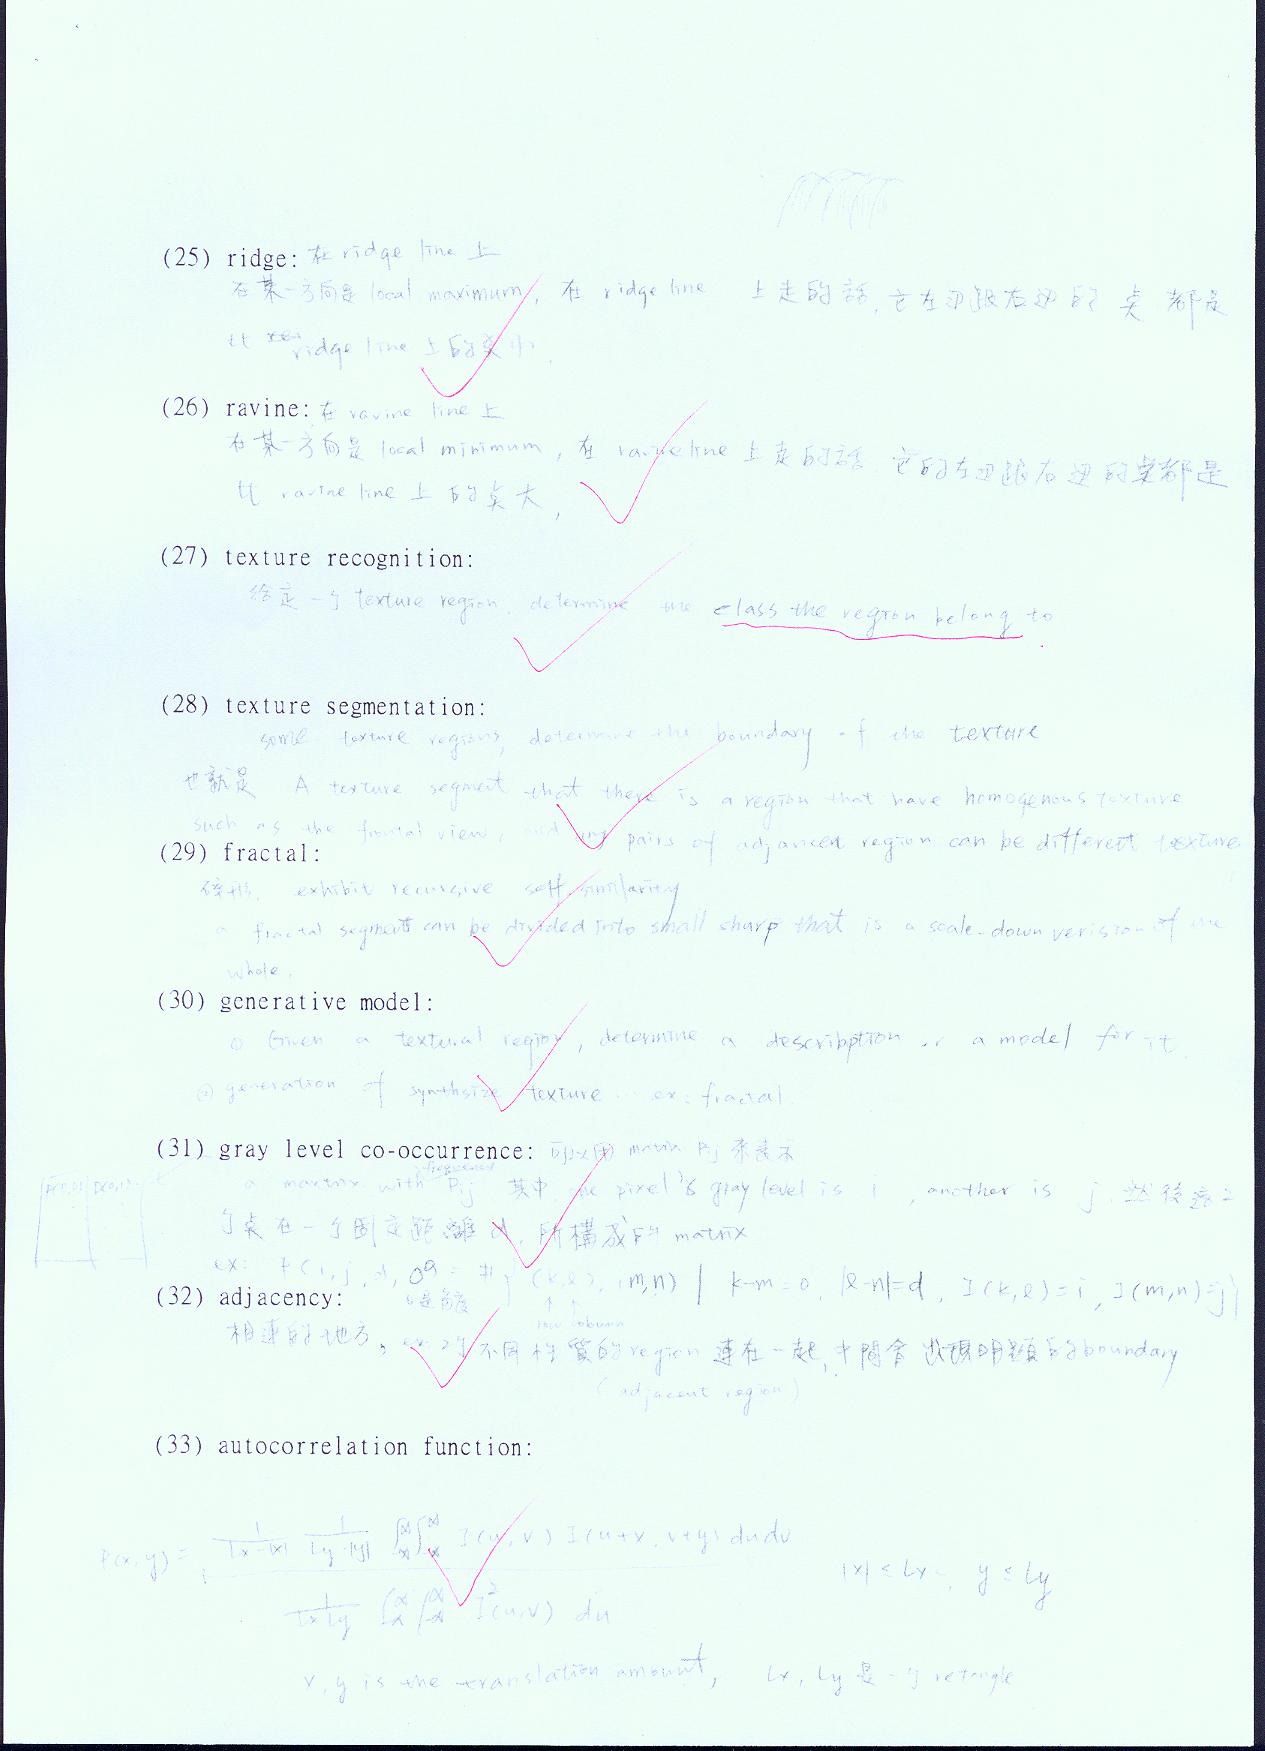 (25) ridge: 在 ridge line 上
在某一方向是 local maximum, 在 ridge line 上走的話, 它左边跟右边的 点 都是
比 ridge line 上的点小.
(26) ravine: 在 ravine line 上
在某一方向是 local minimum, 在 ravine line 上走的話 它的左边跟右边的点都是
比 ravine line 上的点大,
(27) texture recognition:
給定一个 texture region, determine the class the region belong to
(28) texture segmentation:
some texture regions, determine the boundary of the texture
也就是 A texture segment that there is a region that have homogenous texture
such as the frontal view, and any pairs of adjancent region can be different texture
(29) fractal:
碎形, exhibit recursive self similarity
a fractal segment can be divided into small sharp that is a scale-down verision of the
whole.
(30) generative model:
① Given a textural region, determine a describption or a model for it.
② generation of synthsize texture ... ex: fractal.
(31) gray level co-occurrence: 可以用 matrix Pij 來表示
a martrix with Pij 其中 one pixel's gray level is i, another is j, 然後這2
个点在一个固定距離 d, 所構成的 matrix
ex: P(i,j,d,0°) = #{ (k,l), (m,n) | k-m=0, |l-n|=d, I(k,l)=i, I(m,n)=j}
0是角度
row column
(32) adjacency:
相連的地方, ex 2个不同性質的region 連在一起, 中間會出現明顯的boundary
(adjacent region)
(33) autocorrelation function:
P(x,y) = 1/(Lx-|x|) 1/(Ly-|y|) ∫∫ I(u,v) I(u+x, v+y) dudv
|x| ≤ Lx, y ≤ Ly
1/(LxLy) ∫∫ I²(u,v) du
x, y is the translation amount, Lx, Ly 是一个 retangle